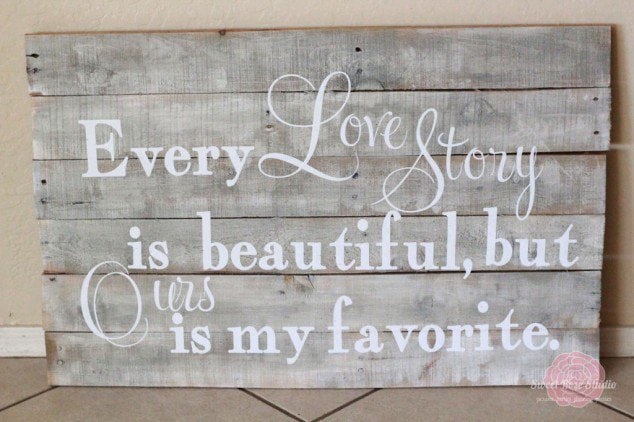 Every Love Story
is beautiful, but
Ours
is my favorite.
Sweet Rose Studio